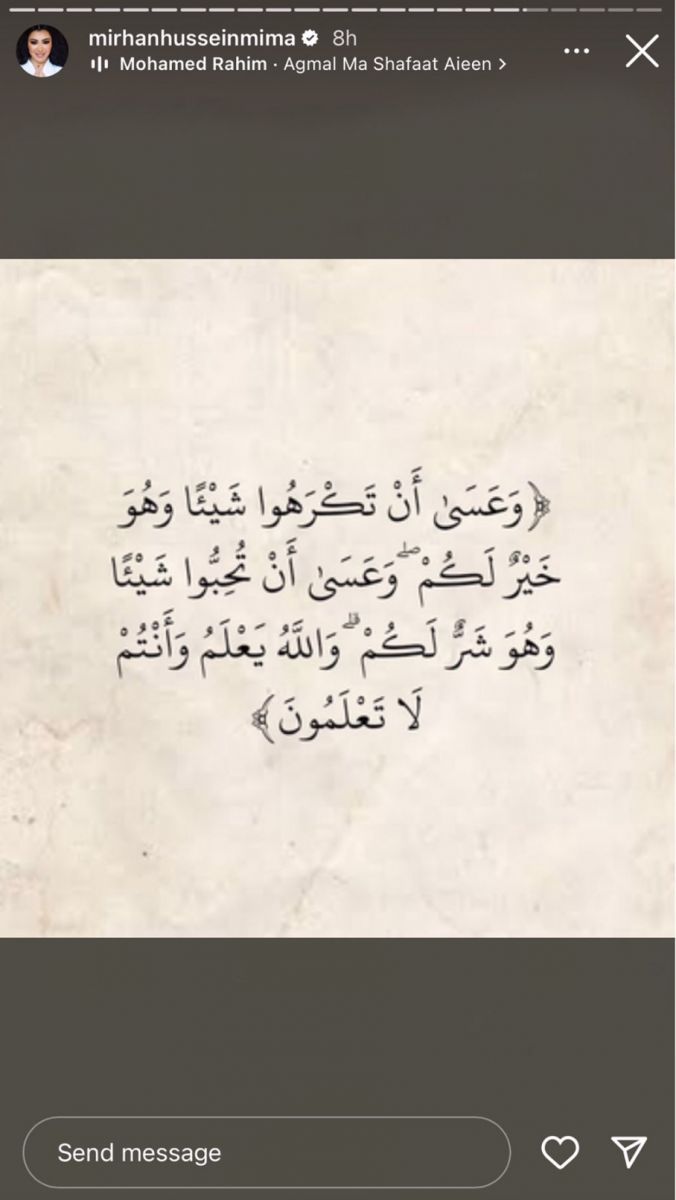 mirhanhusseinmima 8h
Mohamed Rahim · Agmal Ma Shafaat Aieen
﴿وَعَسَىٰ أَنْ تَكْرَهُوا شَيْئًا وَهُوَ
خَيْرٌ لَكُمْ ۖ وَعَسَىٰ أَنْ تُحِبُّوا شَيْئًا
وَهُوَ شَرٌّ لَكُمْ ۗ وَاللَّهُ يَعْلَمُ وَأَنْتُمْ
لَا تَعْلَمُونَ﴾
Send message